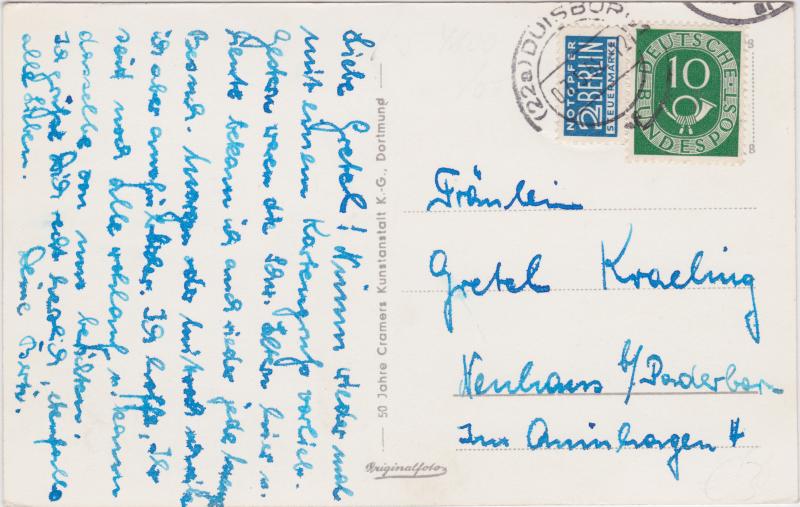 Liebe Gretel! Nimm wieder mal
mit einem Kartengruß vorlieb.
Gestern waren die Schw. Eltern hier u.
heute bekam ich auch wieder jede
Besuch. Morgen oder
ich aber Ich hoffe, Ihr
seid noch alle wohlauf u. kann
dasselbe von uns berichten.
Ich grüße Dich recht herzlich, ebenfalls
alle Lieben.
Deine
50 Jahre Cramers Kunstanstalt K.-G., Dortmund
Originalfoto
(22a) DUISBURG
NOTOPFER
2 BERLIN
STEUERMARKE
DEUTSCHE BUNDESPOST
10
Fräulein
Gretel Kraeling
Neuhaus b/Paderborn
Im 4